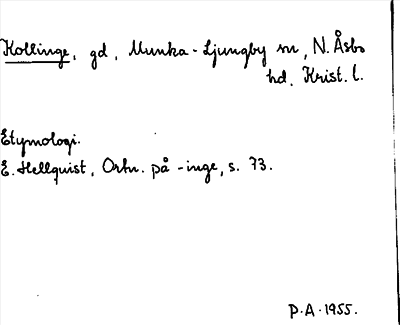 Kollinge, gd, Munka-Ljungby sn, N. Åsbo
hd, Krist. l.
Etymologi.
E. Hellquist, Ortn. på -inge, s. 73.
P.A. 1955.